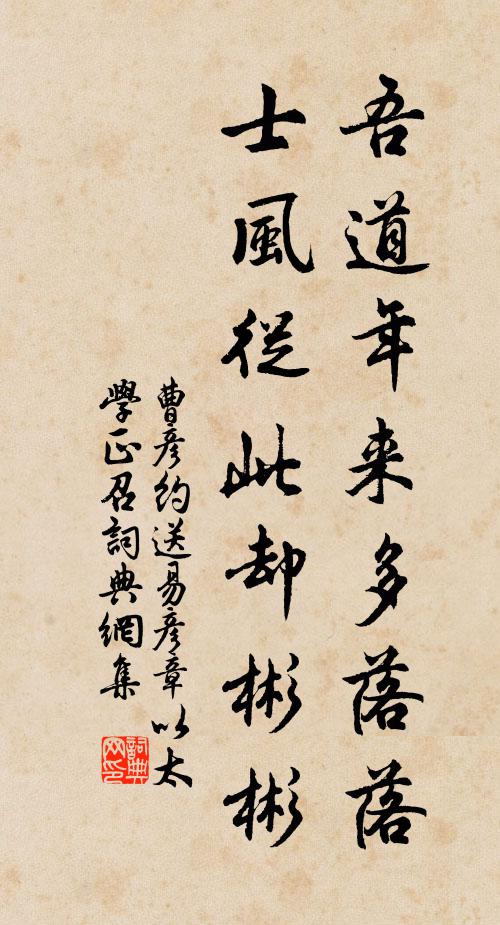 吾道年来多落落
士風從此却彬彬
曹彦約送易彦章以太
學正召詞典網集
詞典网印